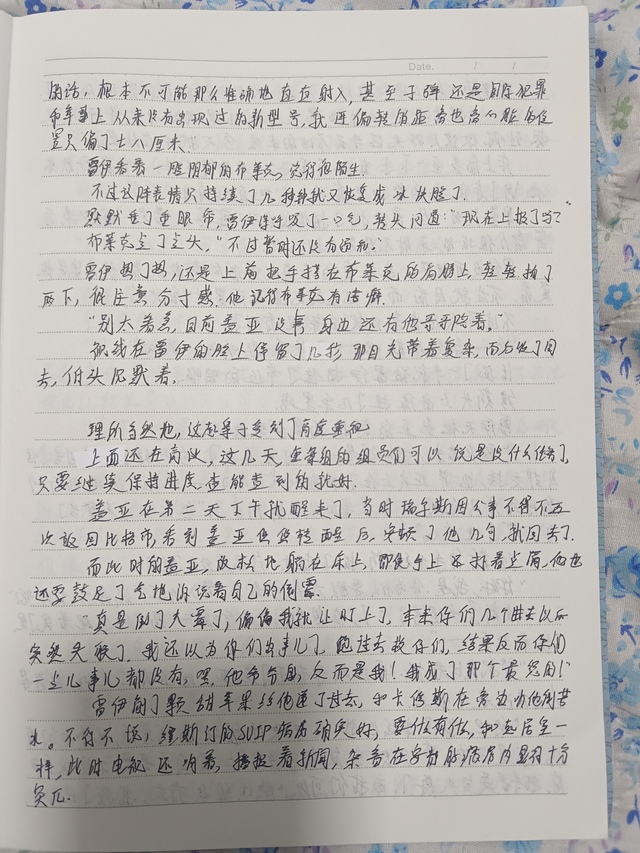 Date. / /
的话，根本不可能那么准确地直直射入，甚至子弹还是国际犯罪
和军事上从来没有出现过的新型号，我连偏转的距离也离心脏的位
置只偏了七八厘米。
雷伊看着一脸阴郁的布莱克，觉得很陌生。
不过这阵表情只持续了几秒钟就又恢复成冰块脸了。
默默垂了垂眼帘，雷伊保守叹了一口气，抬头问道："现在上报了吗？"
布莱克点了点头，"不过暂时还没有回和。"
雷伊想了想，还是上前把手搭在布莱克的肩膀上，轻轻拍了
两下，很注意分寸感，他记得布莱克有洁癖。
"别太着急，目前盖亚没事，身边还有他哥哥陪着。"
视线在雷伊的脸上停留了几秒，那目光带着复杂，而后收了回
去，低头沉默着。
理所当然地，这起案子受到了高度重视
上面还在商议，这几天，坐案组的组员们可以说是没什么任务了，
只要继续保持进度，查能查到的就好。
盖亚在第二天下午就醒来了，当时瑞尔斯因公事不得不再
次返回比格市，看到盖亚他安稳醒后，安顿了他几句，就回去了。
而此时的盖亚，放松地躺在床上，即使手上还打着点滴，他也
还要鼓足了气地诉说着自己的倒霉。
真是倒了大霉了，偏偏我就让盯上了，本来你们几个进去以后
突然失联了，我还以为你们出事儿了，跑过去救你们，结果反而你们
一点儿事儿都没有，嘿，他布分局，反而是我！我成了那个最冤的！
雷伊削了颗甜苹果给他递了过去，和卡修斯在旁边听他倒苦
水。不得不说，维斯汀的SVIP病房确实好，要啥有啥，和起居室一
样，此时电视还响着，播报着新闻，杂音在安静的病房内显得十分
突兀.